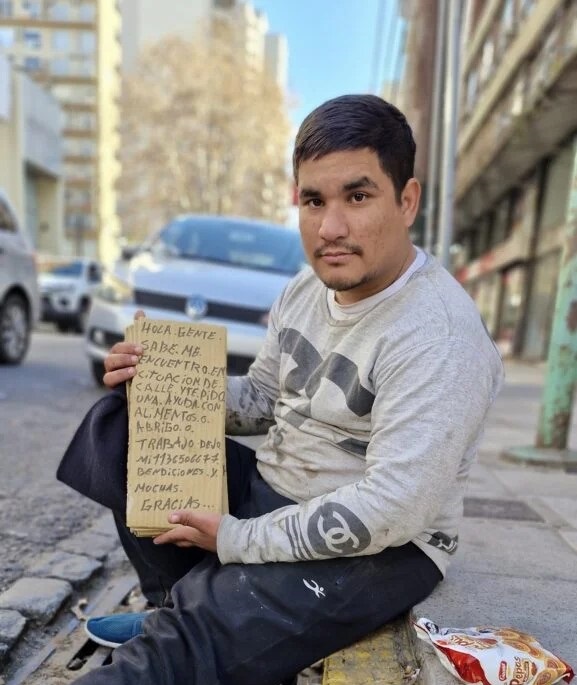 HOLA.GENTE.
SABE.ME.
ENCUENTRO.EN
CITUACION DE
CALLE YTE PIDO
UNA.AYUDA CON
ALIMENTOS.O.
ABRIGO.O.
TRABAJO DEJO
MI 1136506677
BENDICIONES.Y.
MUCHAS.
GRACIAS...
Pepas